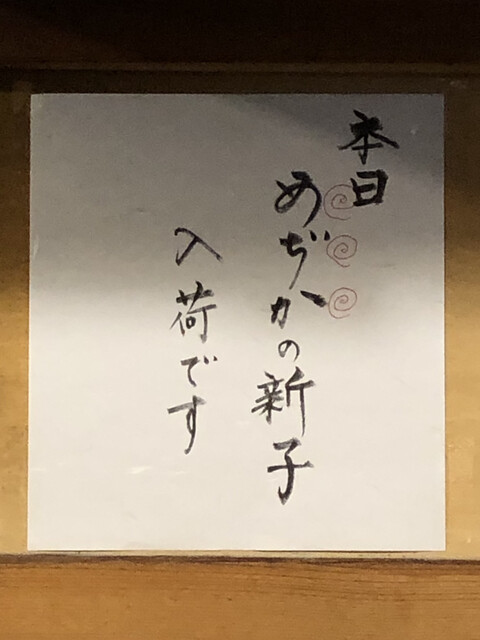 本日
めぢかの新子
入荷です